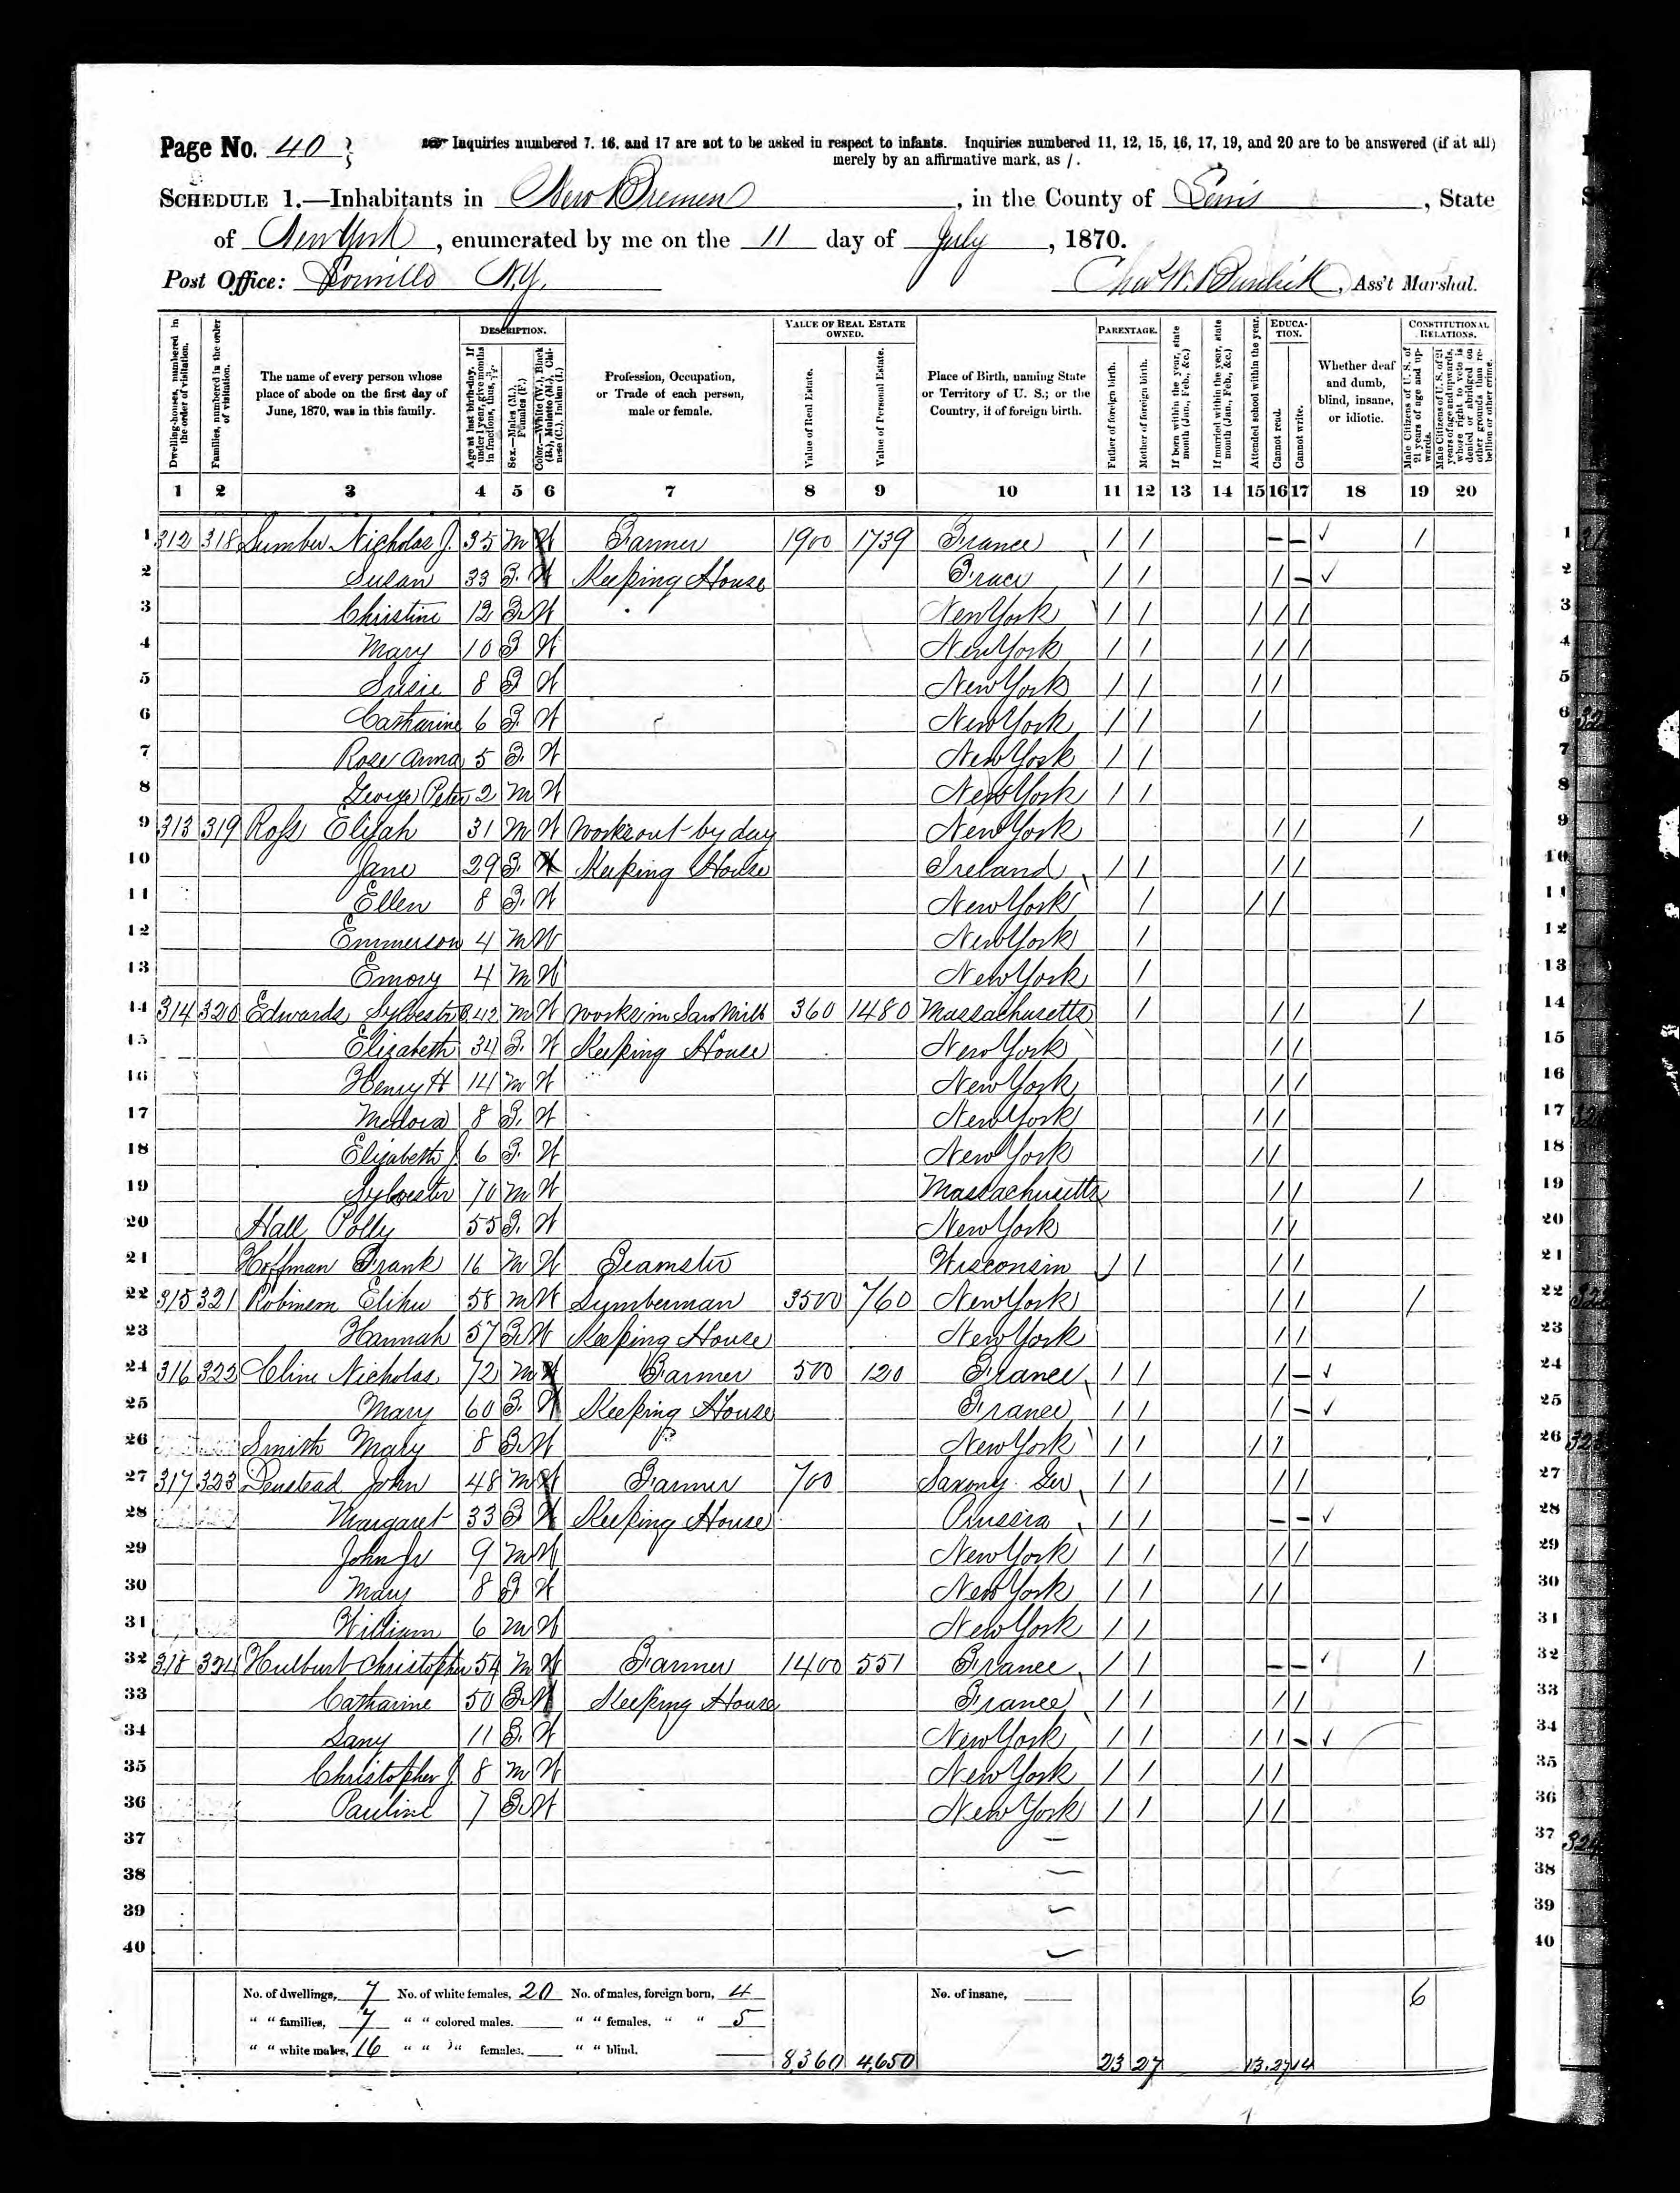 Page No. 40
Inquiries numbered 7, 16, and 17 are not to be asked in respect to infants. Inquiries numbered 11, 12, 15, 16, 17, 19, and 20 are to be answered (if at all)
merely by an affirmative mark, as /.
SCHEDULE 1.—Inhabitants in New Bremen, in the County of Lewis, State
of New York, enumerated by me on the 11 day of July, 1870.
Post Office: Lowville N.Y. Chas W. Burdick, Ass't Marshal.
Dwelling-houses, numbered in the order of visitation.
Families, numbered in the order of visitation.
The name of every person whose place of abode on the first day of June, 1870, was in this family.
DESCRIPTION.
Age at last birth-day. If under 1 year, give months in fractions, thus, 3/12.
Sex.—Males (M.), Females (F.)
Color.—White (W.), Black (B.), Mulatto (M.), Chinese (C.), Indian (I.)
Profession, Occupation, or Trade of each person, male or female.
VALUE OF REAL ESTATE OWNED.
Value of Real Estate.
Value of Personal Estate.
Place of Birth, naming State or Territory of U. S.; or the Country, if of foreign birth.
PARENTAGE.
Father of foreign birth.
Mother of foreign birth.
If born within the year, state month (Jan., Feb., &c.)
If married within the year, state month (Jan., Feb., &c.)
Attended school within the year.
EDUCATION.
Cannot read.
Cannot write.
Whether deaf and dumb, blind, insane, or idiotic.
CONSTITUTIONAL RELATIONS.
Male Citizens of U. S. of 21 years of age and upwards.
Male Citizens of U. S. of 21 years of age and upwards, whose right to vote is denied or abridged on other grounds than rebellion or other crime.
1 2 3 4 5 6 7 8 9 10 11 12 13 14 15 16 17 18 19 20
1 312 318 Nicholas J. 35 M W Farmer 1900 1739 France / / – – ✓ / 1
2 Susan 33 F. W Keeping House / / / – ✓ 2
3 Christine 12 F. W New York / / / / / 3
4 Mary 10 F W New York / / / / / 4
5 Susie 8 F W New York / / / / 5
6 Catharine 6 F. W New York / / / 6
7 Rose Anna 5 F. W New York / / 7
8 George Peter 2 M W New York / / 8
9 313 319 Ross Elijah 31 M W Works out by day New York / / / 9
10 Jane 29 F. W Keeping House Ireland / / / / 10
11 Ellen 8 F. W New York / / / 11
12 Emmerson 4 M W New York / 12
13 Emory 4 M W New York / 13
14 314 320 Edwards Sylvester 42 M W Works in Saw Mill 360 1480 Massachusetts / / / / 14
15 Elizabeth 34 F. W Keeping House New York / / 15
16 Henry H 14 M W New York / / 16
17 Medora 8 F. W New York / / 17
18 Elizabeth J 6 F. W New York / / 18
19 Sylvester 70 M W Massachusetts / / / 19
20 Hall Polly 55 F. W New York / / 20
21 Hoffman Frank 16 M W Teamster Wisconsin / / / / 21
22 315 321 Robinson Elihu 58 M W Lumberman 3500 760 New York / / / 22
23 Hannah 57 F. W Keeping House New York / / 23
24 316 322 Cline Nicholas 72 M W Farmer 500 120 France / / / – ✓ 24
25 Mary 60 F. W Keeping House France / / / – ✓ 25
26 Smith Mary 8 F. W New York / / / / 26
27 317 323 John 48 M W Farmer 700 Saxony Ger / / / / 27
28 Margaret 33 F W Keeping House Prussia / / – – ✓ 28
29 John Jr 9 M W New York / / / / 29
30 Mary 8 F W New York / / / / 30
31 William 6 M W New York / / 31
32 318 324 Hulburt Christopher 54 M W Farmer 1400 551 France / / – – ✓ / 32
33 Catharine 50 F. W Keeping House France / / / / 33
34 11 F. W New York / / / / – ✓ 34
35 Christopher J 8 M W New York / / / / 35
36 Pauline 7 F. W New York / / / / 36
37 37
38 38
39 39
40 40
No. of dwellings, 7 No. of white females, 20 No. of males, foreign born, 4 No. of insane, 6
" " families, 7 " " colored males. " " females, " " 5
" " white males, 16 " " " females. " " blind.
8,360 4,650 23 27 13 27 14